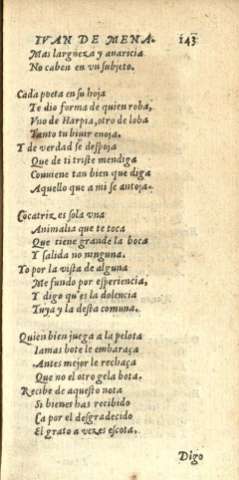 IVAN DE MENA. 143
Mas largueza y auaricia
No caben en vn subjeto.
Cada poeta en su hoja
Te dio forma de quien roba,
Vno de Harpia, otro de loba
Tanto tu biuir enoja.
Y de verdad se despoja
Que de ti triste mendiga
Conuiene tan bien que diga
Aquello que a mi se antoja.
Cocatriz es sola vna
Animalia que te toca
Que tiene grande la boca
Y salida no ninguna.
Yo por la vista de alguna
Me fundo por esperiencia,
Y digo qu'es la dolencia
Tuya y la desta comuna.
Quien bien juega a la pelota
Iamas bote le embaraça
Antes mejor le rechaça
Que no el otro gela bota.
Recibe de aquesto nota
Si bienes has recibido
Ca por el desgradecido
El grato a vezes escota.
Digo